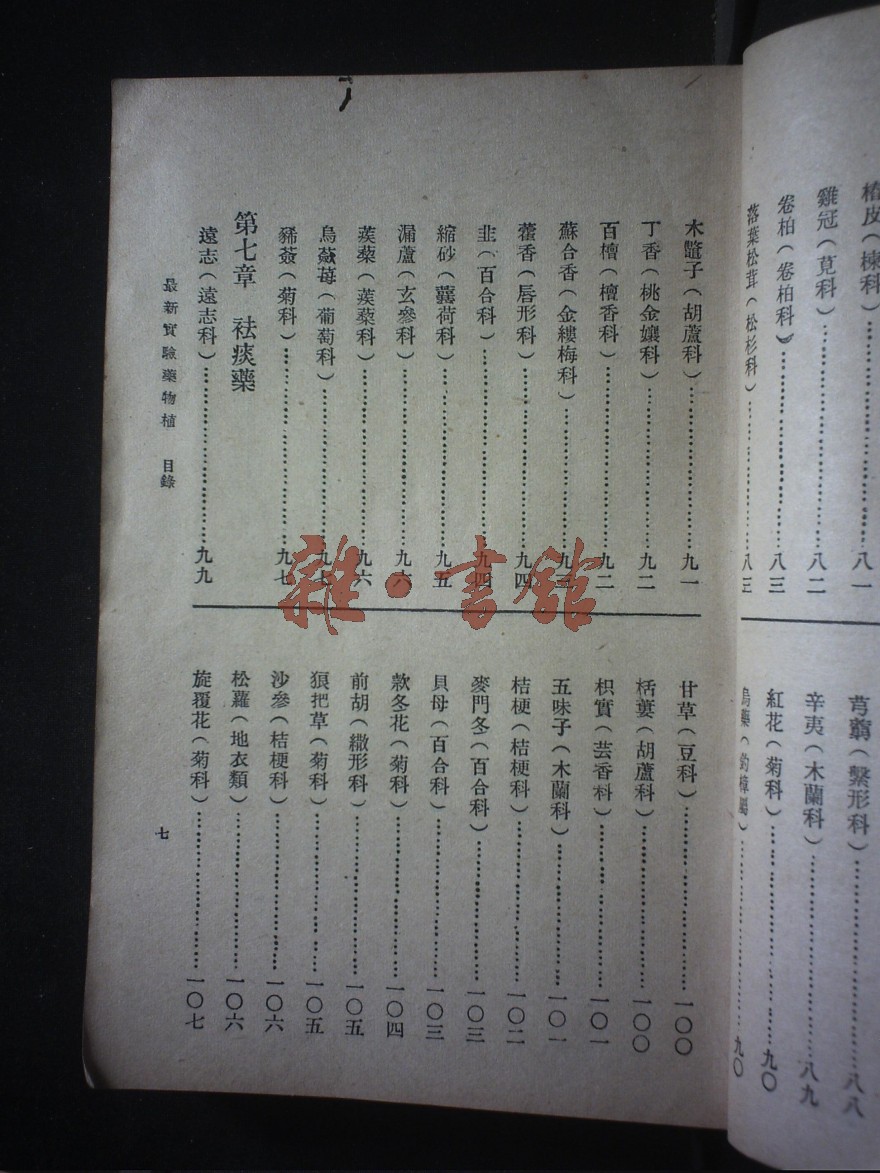 椿皮（楝科）………八一
雞冠（莧科）………八二
卷柏（卷柏科）………八三
落葉松茸（松杉科）………八三
芎藭（繖形科）………八八
辛夷（木蘭科）………八九
紅花（菊科）………九〇
烏藥（釣樟屬）………九〇
木鼈子（胡蘆科）………九一
丁香（桃金孃科）………九二
百檀（檀香科）………九二
蘇合香（金縷梅科）………九三
藿香（唇形科）………九四
韭（百合科）………九四
縮砂（蘘荷科）………九五
漏蘆（玄參科）………九六
蒺蔾（蒺蔾科）………九六
烏蘞莓（葡萄科）………九七
豨薟（菊科）………九七
第七章　祛痰藥
遠志（遠志科）………九九
甘草（豆科）………一〇〇
栝蔞（胡蘆科）………一〇〇
枳實（芸香科）………一〇一
五味子（木蘭科）………一〇一
桔梗（桔梗科）………一〇二
麥門冬（百合科）………一〇三
貝母（百合科）………一〇三
款冬花（菊科）………一〇四
前胡（繖形科）………一〇五
狼把草（菊科）………一〇五
沙參（桔梗科）………一〇六
松蘿（地衣類）………一〇六
旋覆花（菊科）………一〇七
最新實驗藥物植　目錄
七
雜·書館